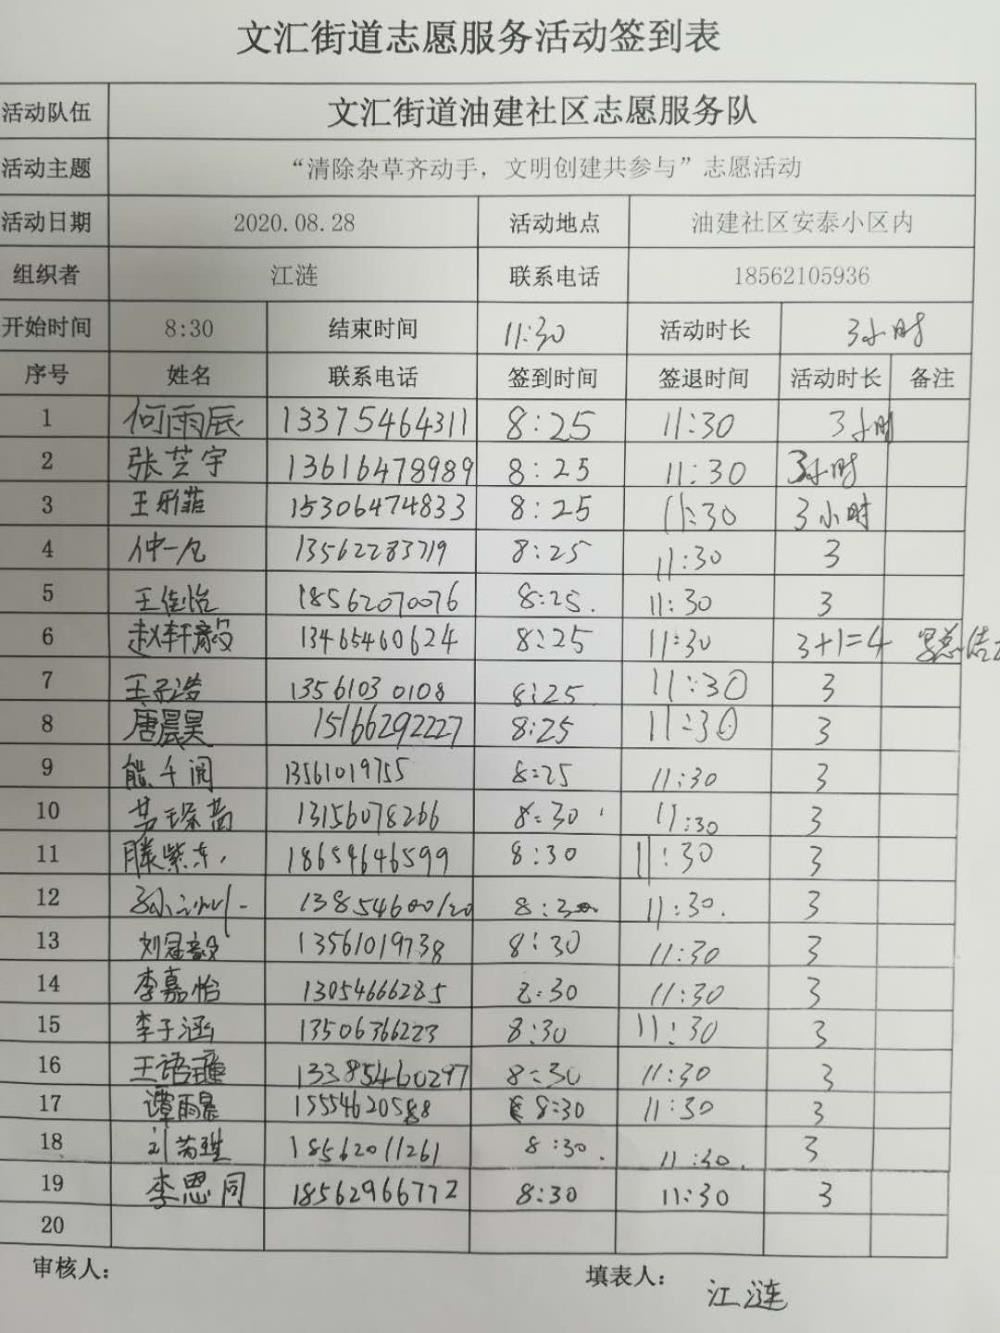 文汇街道志愿服务活动签到表
活动队伍 文汇街道油建社区志愿服务队
活动主题 “清除杂草齐动手，文明创建共参与”志愿活动
活动日期 2020.08.28 活动地点 油建社区安泰小区内
组织者 江涟 联系电话 18562105936
开始时间 8:30 结束时间 11:30 活动时长 3小时
序号 姓名 联系电话 签到时间 签退时间 活动时长 备注
1 何雨辰 13375464311 8:25 11:30 3小时
2 张芝宇 13616478989 8:25 11:30 3小时
3 王彤菲 15306474833 8:25 11:30 3小时
4 仲一凡 13562283719 8:25 11:30 3
5 王佳怡 18562070076 8:25. 11:30 3
6 赵轩毅 13465460624 8:25 11:30 3+1=4 写总结
7 王子浩 13561030108 8:25 11:30 3
8 唐晨昊 15166292227 8:25 11:30 3
9 熊千阅 13561019755 8:25 11:30 3
10 13156078266 8:30 11:30 3
11 滕紫东 18654646599 8:30 11:30 3
12 13854600120 8:30 11:30. 3
13 刘冠毅 13561019738 8:30 11:30 3
14 李嘉怡 13054666285 8:30 11:30 3
15 李子涵 13506366223 8:30 11:30 3
16 王语 13385460297 8:30 11:30 3
17 谭雨 15554620588 8:30 11:30 3
18 18562011261 8:30. 11:30. 3
19 李思同 18562966772 8:30 11:30 3
20
审核人： 填表人： 江涟